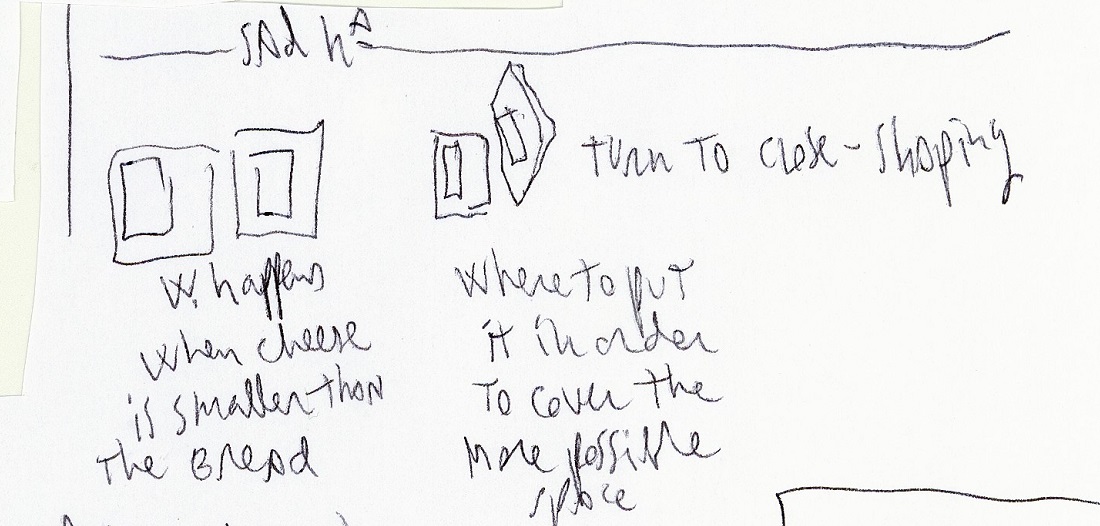 turn to close-shoping
W. happens
when cheese
is smaller than
the bread
where to put
it in order
to cover the
more possible
space